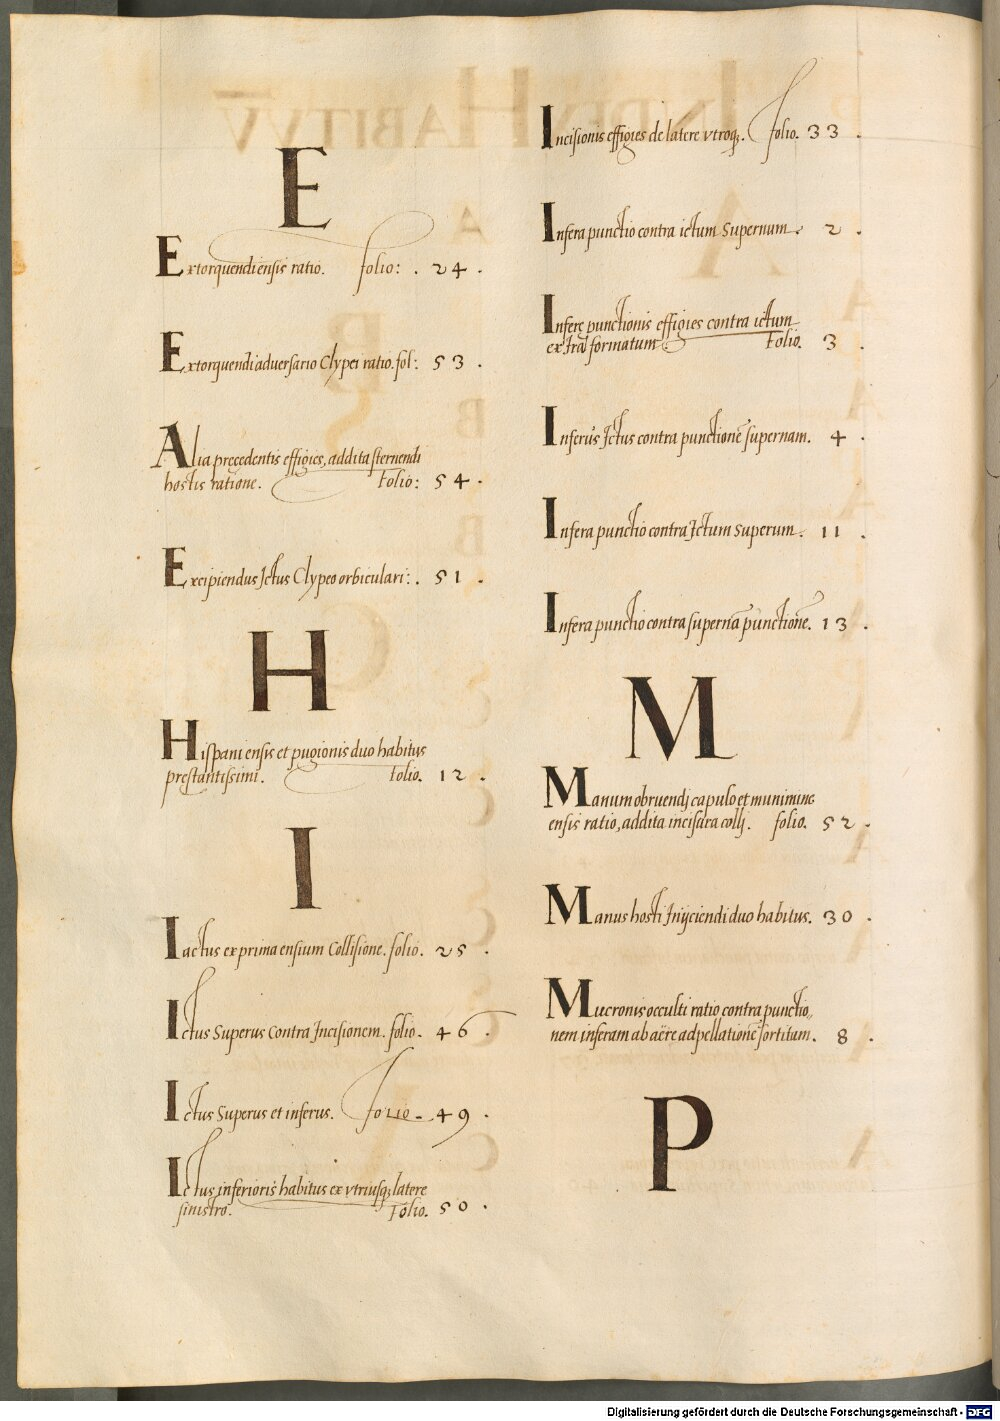 E
Extorquendi ensis ratio. folio: . 24 .
Extorquendi adversario Clypei ratio. fol: 53 .
Alia precedentis effigies, addita sternendi
hostis ratione. Folio: 54 .
Excipiendus Ictus Clypeo orbiculari: . 51 .
H
Hispani ensis et pugionis duo habitus
prestantissimi. Folio. 12 .
I
Iactus ex prima ensium Collisione. folio. 25 .
Ictus Superus Contra Incisionem. folio. 46 .
Ictus Superus et inferus. folio. 49 .
Ictus inferioris habitus ex vtriusq; latere
sinistro. Folio. 50 .
Incisionis effigies de latere vtroq;. folio. 33 .
Infera punctio contra ictum Supernum. 2 .
Infere punctionis effigies contra ictum
extra formatum Folio. 3 .
Inferus Ictus contra punctionē supernam. 4 .
Infera punctio contra Ictum Superum. 11 .
Infera punctio contra supernā punctionē. 13 .
M
Manum obruendj capulo et munimine
ensis ratio, addita incisura collj. folio. 52 .
Manus hosti Inijciendi duo habitus. 30 .
Mucronis occulti ratio contra punctio„
nem inferam ab aëre adpellationē sortitam. 8 .
P
Digitalisierung gefördert durch die Deutsche Forschungsgemeinschaft - DFG